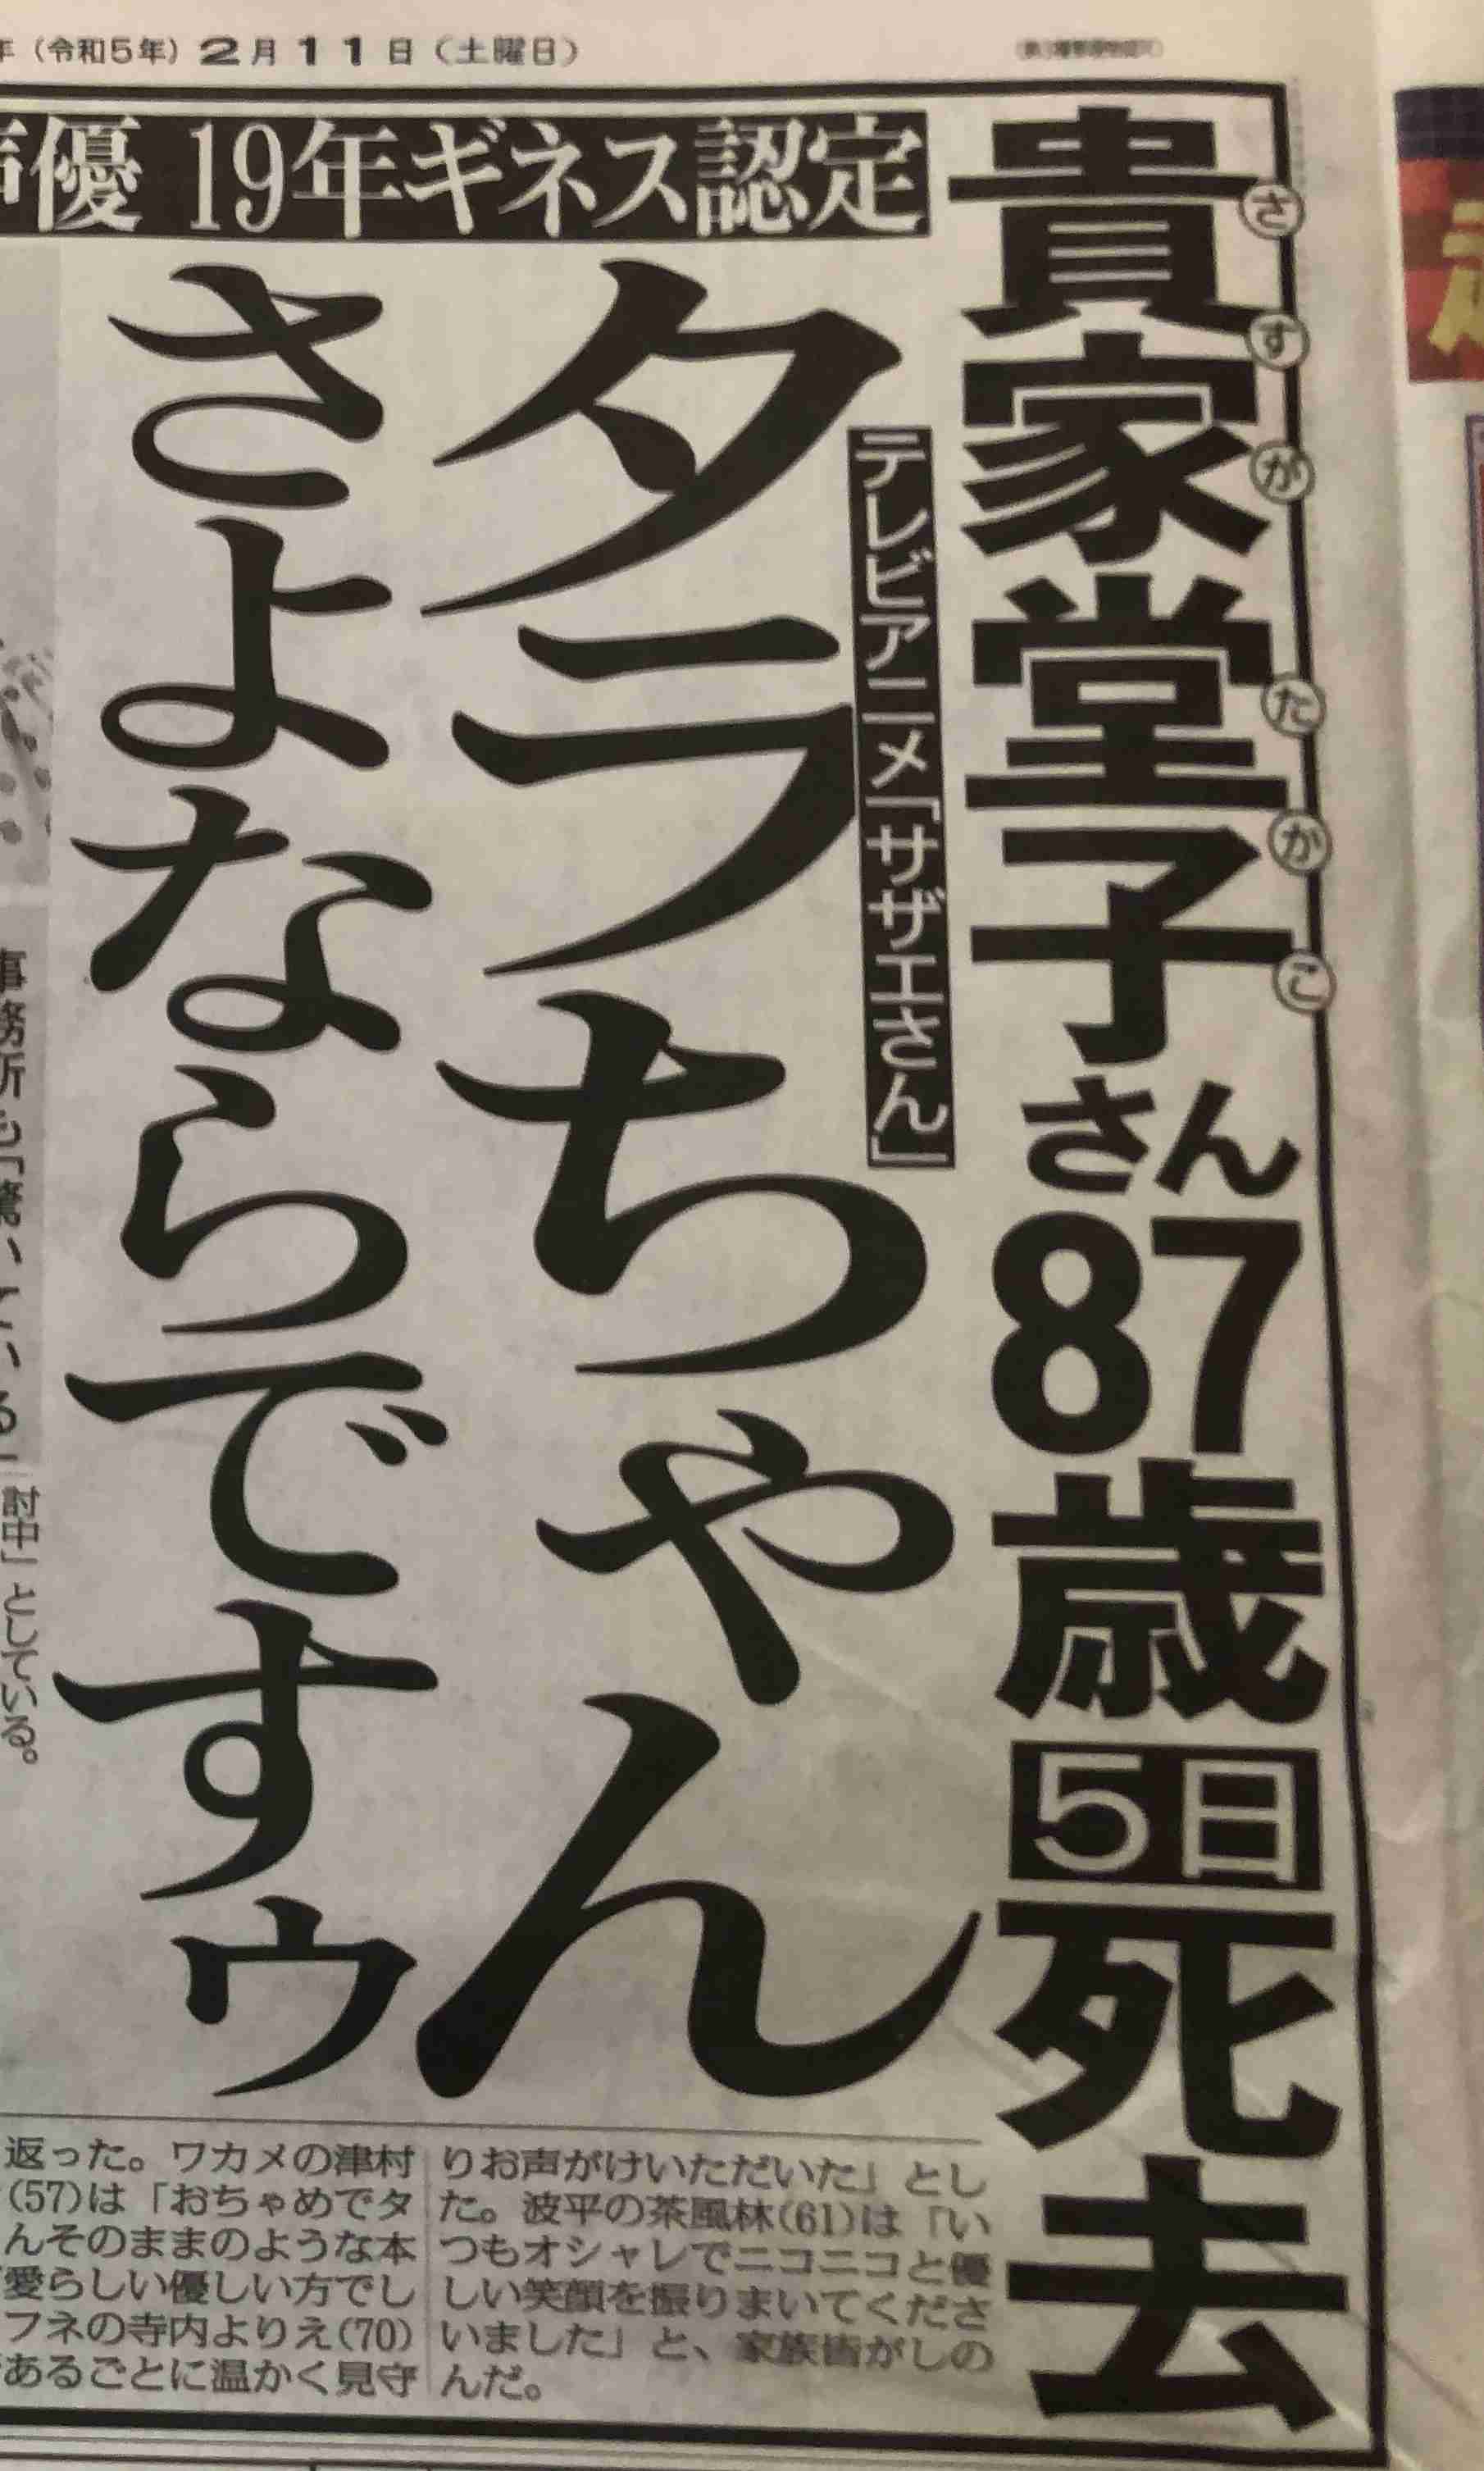 年（令和5年）2月11日（土曜日）
貴家堂子さん87歳5日死去
さすがたかこ
声優 19年ギネス認定
テレビアニメ「サザエさん」
タラちゃん
さよならですゥ
事務所も「驚いている」
討中」としている。
返った。ワカメの津村
(57)は「おちゃめでタ
んそのままのような本
愛らしい優しい方でし
フネの寺内よりえ(70)
あるごとに温かく見守
りお声がけいただいた」とし
た。波平の茶風林(61)は「い
つもオシャレでニコニコと優
しい笑顔を振りまいてくださ
いました」と、家族皆がしの
んだ。